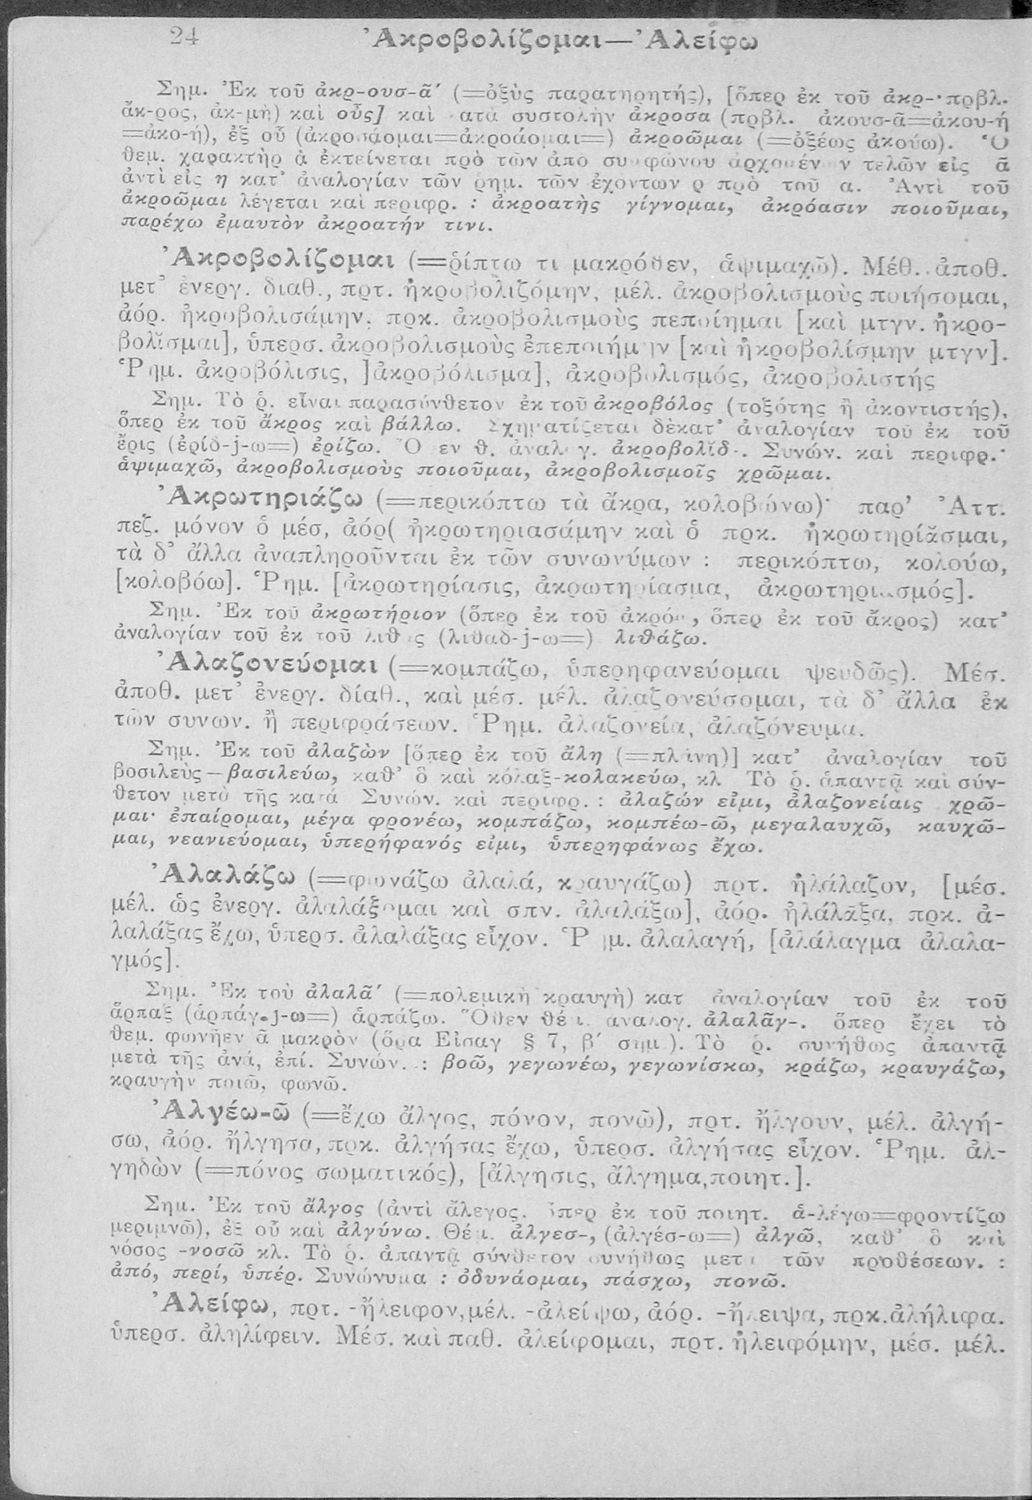 24
Ἀκροβολίζομαι—Ἀλείφω
Σημ. Ἐκ τοῦ ἀκρ-ουσ-ᾶ΄ (=ὀξὺς παρατηρητής), [ὅπερ ἐκ τοῦ ἀκρ-· πρβλ.
ἄκ-ρος, ἀκ-μὴ) καὶ οὖς] καὶ κατὰ συστολὴν ἄκροσα (πρβλ. ἀκουσ-ᾶ=ἀκου-ή
=ἀκο-ή), ἐξ οὗ (ἀκροσάομαι=ἀκροάομαι=) ἀκροῶμαι (=ὀξέως ἀκούω). Ὁ
θεμ. χαρακτὴρ ᾰ ἐκτείνεται πρὸ τῶν ἀπὸ συμφώνου ἀρχομένων τελῶν εἰς ᾱ
ἀντὶ εἰς η κατ' ἀναλογίαν τῶν ῥημ. τῶν ἐχόντων ρ πρὸ τοῦ α. Ἀντὶ τοῦ
ἀκροῶμαι λέγεται καὶ περιφρ. : ἀκροατὴς γίγνομαι, ἀκρόασιν ποιοῦμαι,
παρέχω ἐμαυτὸν ἀκροατήν τινι.
Ἀκροβολίζομαι (=ῥίπτω τι μακρόθεν, ἁψιμαχῶ). Μέθ. ἀποθ.
μετ' ἐνεργ. διαθ., πρτ. ἠκροβολιζόμην, μέλ. ἀκροβολισμοὺς ποιήσομαι,
ἀόρ. ἠκροβολισάμην, πρκ. ἀκροβολισμοὺς πεποίημαι [καὶ μτγν. ἠκρο-
βολῐσμαι], ὑπερσ. ἀκροβολισμοὺς ἐπεποιήμην [καὶ ἠκροβολίσμην μτγν].
Ῥημ. ἀκροβόλισις, ]ἀκροβόλισμα], ἀκροβολισμός, ἀκροβολιστής
Σημ. Τὸ ῥ. εἶναι παρασύνθετον ἐκ τοῦ ἀκροβόλος (τοξότης ἢ ἀκοντιστής),
ὅπερ ἐκ τοῦ ἄκρος καὶ βάλλω. Σχηματίζεται δὲ κατ' ἀναλογίαν τοῦ ἐκ τοῦ
ἔρις (ἐρίδ-j-ω=) ἐρίζω. Ὁθεν θ. ἀναλογ. ἀκροβολῐδ-. Συνών. καὶ περιφρ.·
ἁψιμαχῶ, ἀκροβολισμοὺς ποιοῦμαι, ἀκροβολισμοῖς χρῶμαι.
Ἀκρωτηριάζω (=περικόπτω τὰ ἄκρα, κολοβώνω)· παρ' Ἀττ.
πεζ. μόνον ὁ μέσ, ἀόρ( ἠκρωτηριασάμην καὶ ὁ πρκ. ἠκρωτηρίᾰσμαι,
τὰ δ' ἄλλα ἀναπληροῦνται ἐκ τῶν συνωνύμων : περικόπτω, κολούω,
[κολοβόω]. Ῥημ. [ἀκρωτηρίασις, ἀκρωτηρίασμα, ἀκρωτηριασμός].
Σημ. Ἐκ τοῦ ἀκρωτήριον (ὅπερ ἐκ τοῦ ἀκρό-, ὅπερ ἐκ τοῦ ἄκρος) κατ'
ἀναλογίαν τοῦ ἐκ τοῦ λιθὰς (λιθαδ-j-ω=) λιθάζω.
Ἀλαζονεύομαι (=κομπάζω, ὑπερηφανεύομαι ψευδῶς). Μέσ.
ἀποθ. μετ' ἐνεργ. δίαθ., καὶ μέσ. μέλ. ἀλαζονεύσομαι, τὰ δ' ἄλλα ἐκ
τῶν συνων. ἢ περιφράσεων. Ῥημ. ἀλαζονεία, ἀλαζόνευμα.
Σημ. Ἐκ τοῦ ἀλαζὼν [ὅπερ ἐκ τοῦ ἄλη (=πλάνη)] κατ' ἀναλογίαν τοῦ
βοσιλεὺς—βασιλεύω, καθ' ὃ καὶ κόλαξ-κολακεύω, κλ Τὸ ῥ. ἀπαντᾷ καὶ σύν-
θετον μετὰ τῆς κατά Συνών. καὶ περιφρ. : ἀλαζών εἰμι, ἀλαζονείαις χρῶ-
μαι· ἐπαίρομαι, μέγα φρονέω, κομπάζω, κομπέω-ῶ, μεγαλαυχῶ, καυχῶ-
μαι, νεανιεύομαι, ὑπερήφανός εἰμι, ὑπερηφάνως ἔχω.
Ἀλαλάζω (=φωνάζω ἀλαλά, κραυγάζω) πρτ. ἠλάλαζον, [μέσ.
μέλ. ὡς ἐνεργ. ἀλαλάξομαι καὶ σπν. ἀλαλάξω], ἀόρ. ἠλάλᾰξα, πρκ. ἀ-
λαλάξας ἔχω, ὑπερσ. ἀλαλάξας εἶχον. Ῥημ. ἀλαλαγή, [ἀλάλαγμα ἀλαλα-
γμός].
Σημ. Ἐκ τοῦ ἀλαλᾶ΄ (=πολεμικὴ κραυγὴ) κατ ἀναλογίαν τοῦ ἐκ τοῦ
ἅρπαξ (ἁρπάγ-j-ω=) ἁρπάζω. Ὅθεν θέμ. αναλογ. ἀλαλᾰγ-. ὅπερ ἔχει τὸ
θεμ. φωνῆεν ᾱ μακρὸν (ὅρα Εἰσαγ § 7, β΄ σημ.). Τὸ ῥ. συνήθως ἀπαντᾷ
μετὰ τῆς ἀνά, ἐπί. Συνών. : βοῶ, γεγωνέω, γεγωνίσκω, κράζω, κραυγάζω,
κραυγὴν ποιῶ, φωνῶ.
Ἀλγέω-ῶ (=ἔχω ἄλγος, πόνον, πονῶ), πρτ. ἤλγουν, μέλ. ἀλγή-
σω, ἀόρ. ἤλγησα, πρκ. ἀλγήσας ἔχω, ὑπερσ. ἀλγήσας εἶχον. Ῥημ. ἀλ-
γηδὼν (=πόνος σωματικός), [ἄλγησις, ἄλγημα,ποιητ.].
Σημ. Ἐκ τοῦ ἄλγος (ἀντὶ ἄλεγος. ὅπερ ἐκ τοῦ ποιητ. ἀ-λέγω=φροντίζω
μεριμνῶ), ἐξ οὗ καὶ ἀλγύνω. Θέμ. ἀλγεσ-, (ἀλγέσ-ω=) ἀλγῶ, καθ' ὃ καὶ
νόσος -νοσῶ κλ. Τὸ ῥ. ἀπαντᾷ σύνθετον συνήθως μετὰ τῶν προθέσεων. :
ἀπό, περί, ὑπέρ. Συνώνυμα : ὀδυνάομαι, πάσχω, πονῶ.
Ἀλείφω, πρτ. -ἤλειφον,μέλ. -ἀλείψω, ἀόρ. -ἤλειψα, πρκ.ἀλήλιφα.
ὑπερσ. ἀληλίφειν. Μέσ. καὶ παθ. ἀλείφομαι, πρτ. ἠλειφόμην, μέσ. μέλ.